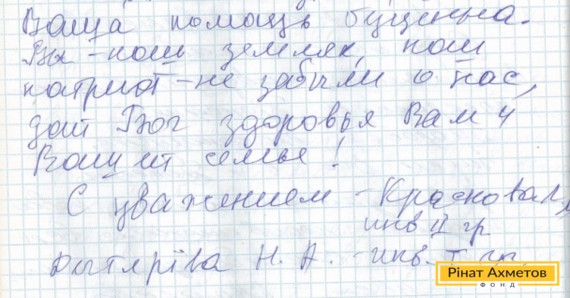 Ваша помощь бущенна.
Вы - наш земляк, наш
патриот - не забыли о нас,
дай Бог здоровья Вам и
Вашей семье!
С уважением -
инв II гр
Н. А. - инв. I гр.
Рінат Ахметов
ФОНД